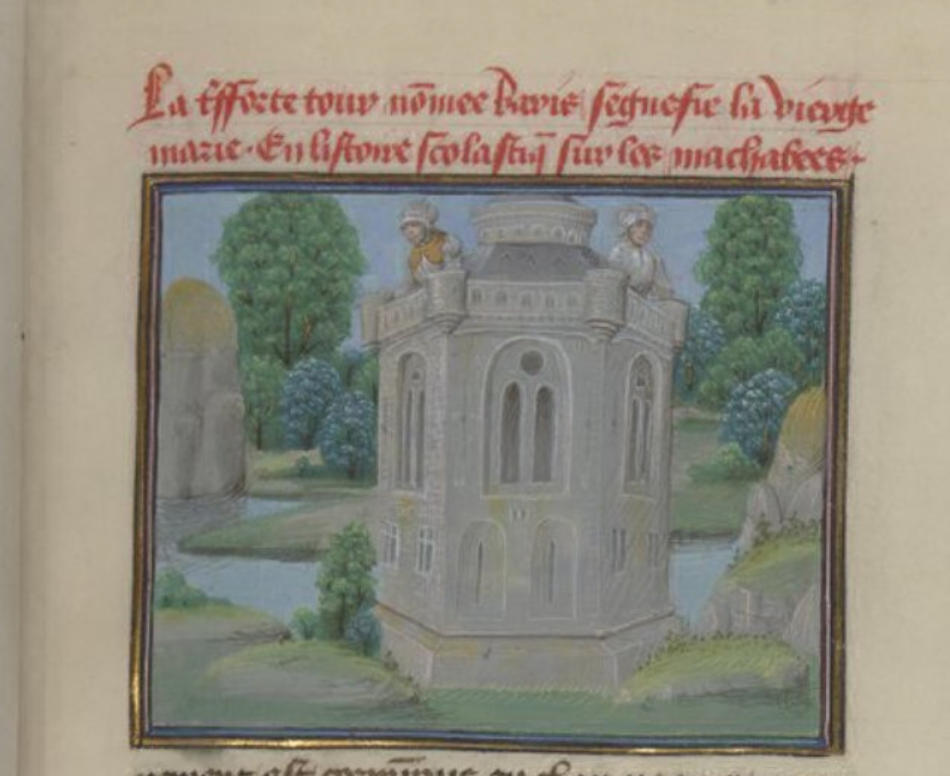 La tſſorte tour nōmee Baris ſegneſie la vierge
marie. En liſtoire ſcolaſtiq̄ ſur les machabees.